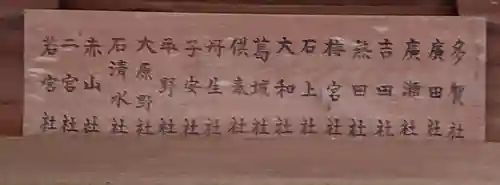 多賀社
廣田社
廣瀬社
吉田社
熱田社
梅宮社
石上社
大和社
葛城社
供表社
丹生社
子安社
平野社
大原野社
石清水社
赤山社
二宮社
若宮社